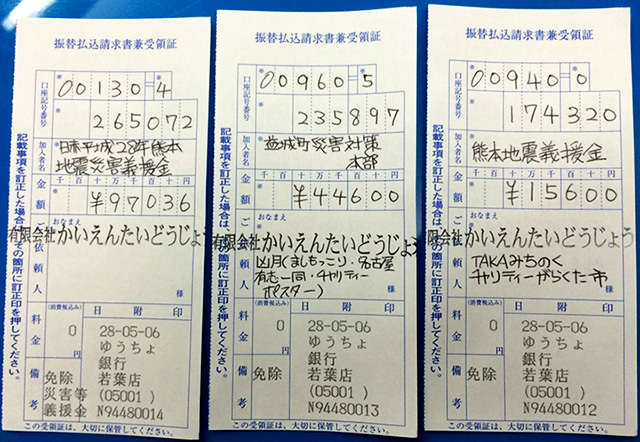 振替払込請求書兼受領証
口座記号番号
00130=4
265072
加入者名
日赤平成28年熊本
地震災害義援金
金額
千百十万千百十円
¥97036
ご依頼人
おなまえ
有限会社かいえんたいどうじょう
様
(消費税込み)
料金
0
円
日附印
28-05-06
ゆうちょ
銀行
若葉店
(05001)
N94480014
備考
免除
災害等
義援金
記載事項を訂正した場合は、その箇所に訂正印を押してください。
この受領証は、大切に保管してください。
振替払込請求書兼受領証
口座記号番号
00960=5
235897
加入者名
益城町災害対策
本部
金額
千百十万千百十円
¥44600
ご依頼人
おなまえ
有限会社かいえんたいどうじょう
名古屋
有志一同・チャリティー
ポスター)
様
(消費税込み)
料金
0
円
日附印
28-05-06
ゆうちょ
銀行
若葉店
(05001)
N94480013
備考
免除
記載事項を訂正した場合は、その箇所に訂正印を押してください。
この受領証は、大切に保管してください。
振替払込請求書兼受領証
口座記号番号
00940=0
174320
加入者名
熊本地震義援金
金額
千百十万千百十円
¥15600
ご依頼人
おなまえ
有限会社かいえんたいどうじょう
TAKAみちのく
チャリティーがらくた市
様
(消費税込み)
料金
0
円
日附印
28-05-06
ゆうちょ
銀行
若葉店
(05001)
N94480012
備考
免除
記載事項を訂正した場合は、その箇所に訂正印を押してください。
この受領証は、大切に保管してください。